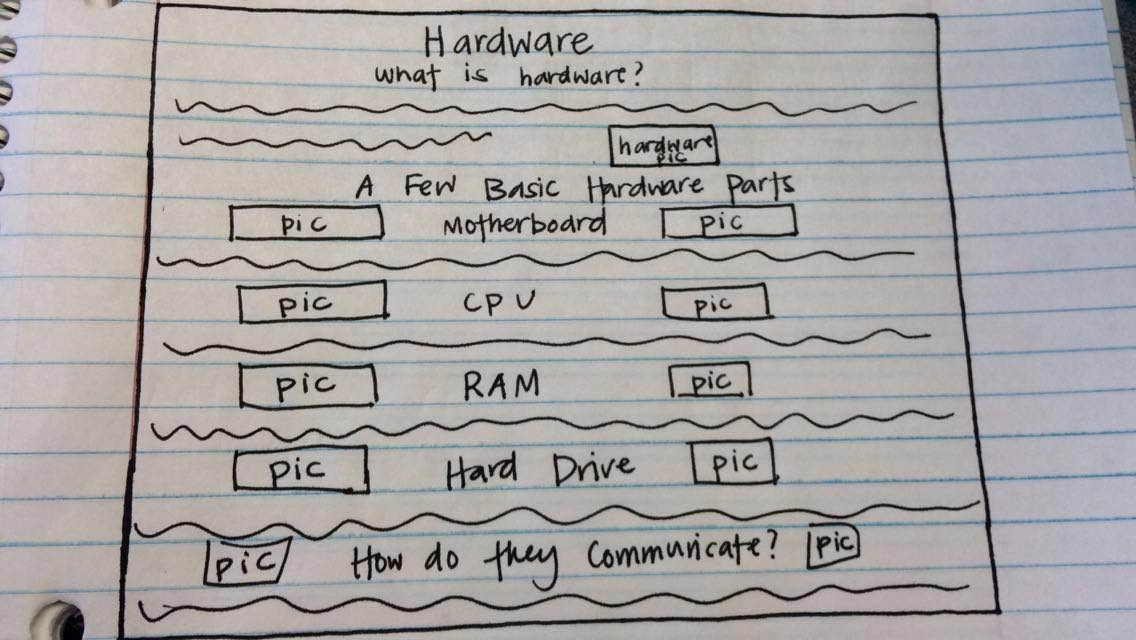 Hardware
what is hardware?
hardware pic
A Few Basic Hardware Parts
pic Motherboard pic
pic CPU pic
pic RAM pic
pic Hard Drive pic
pic How do they communicate? pic